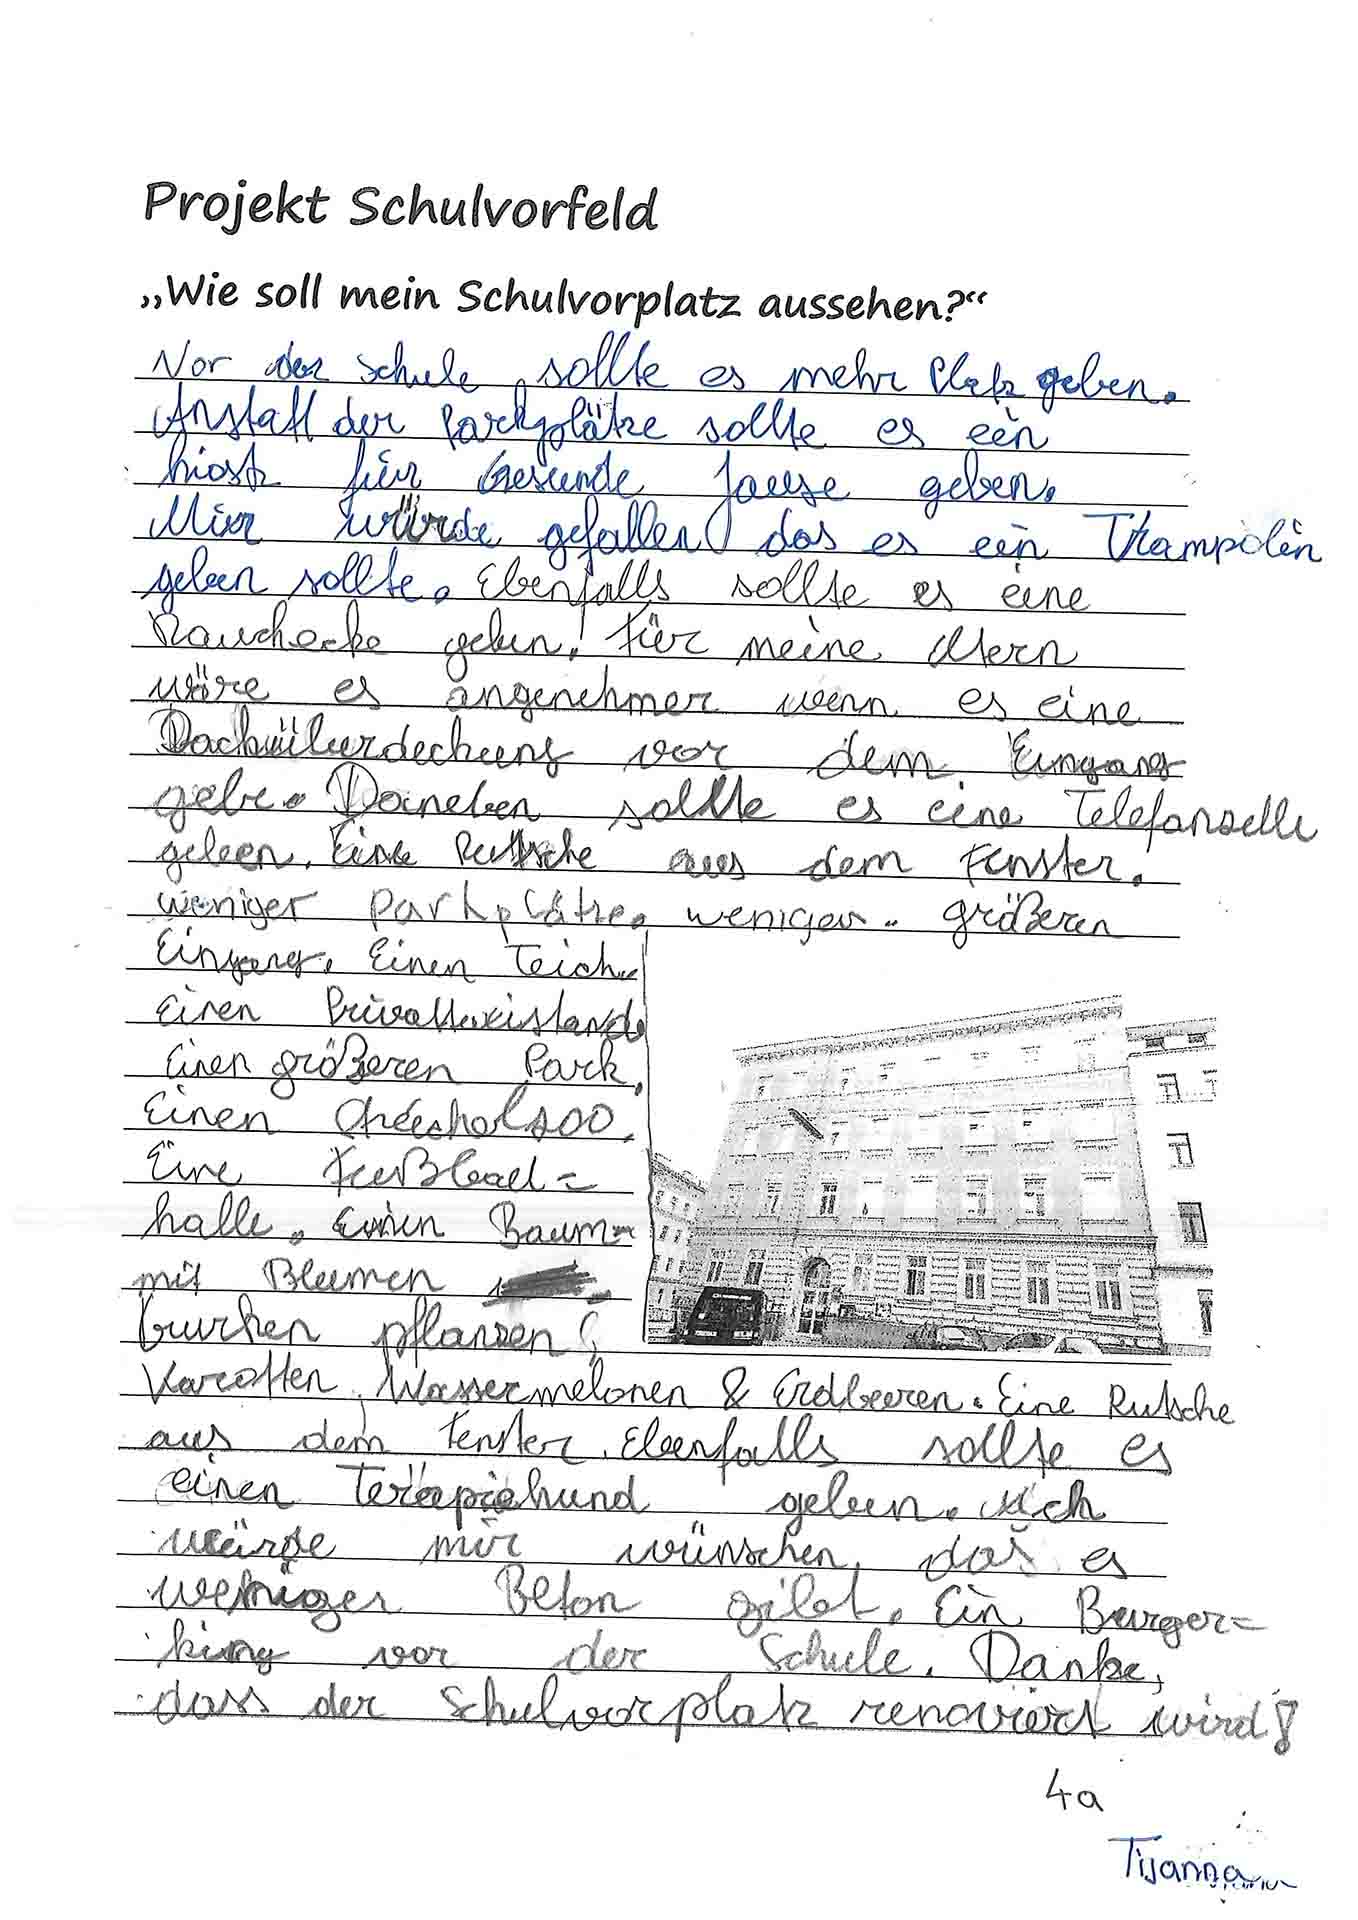 Projekt Schulvorfeld
„Wie soll mein Schulvorplatz aussehen?“
Vor der Schule sollte es mehr Platz geben.
Anstatt der Parkplätze sollte es ein
kiosk für Gesunde Jause geben.
Mir würde gefallen das es ein Trampolin
geben sollte. Ebenfalls sollte es eine
Rauchecke geben! Für meine Eltern
wäre es angenehmer wenn es eine
Dachüberdechung vor dem Eingang
gebe. Daneben sollte es eine Telefonzelle
geben. Eine Rutsche aus dem Fenster.
weniger Parkplätze. weniger.. größeren
Eingang. Einen Teich.
einen Privattaxistand.
Einen größeren Park.
Einen
Eine Fußball=
halle. Einen Baum=
mit Blumen
Gurken pflanzen
Karotten, Wassermelonen & Erdbeeren. Eine Rutsche
aus dem Fenster. Ebenfalls sollte es
einen Terapiehund geben. Ich
würde mir wünschen, das es
weniger Beton gibt. Ein Burger=
king vor der Schule. Danke,
dass der Schulvorplatz renoviert wird!
4a
Tijanna